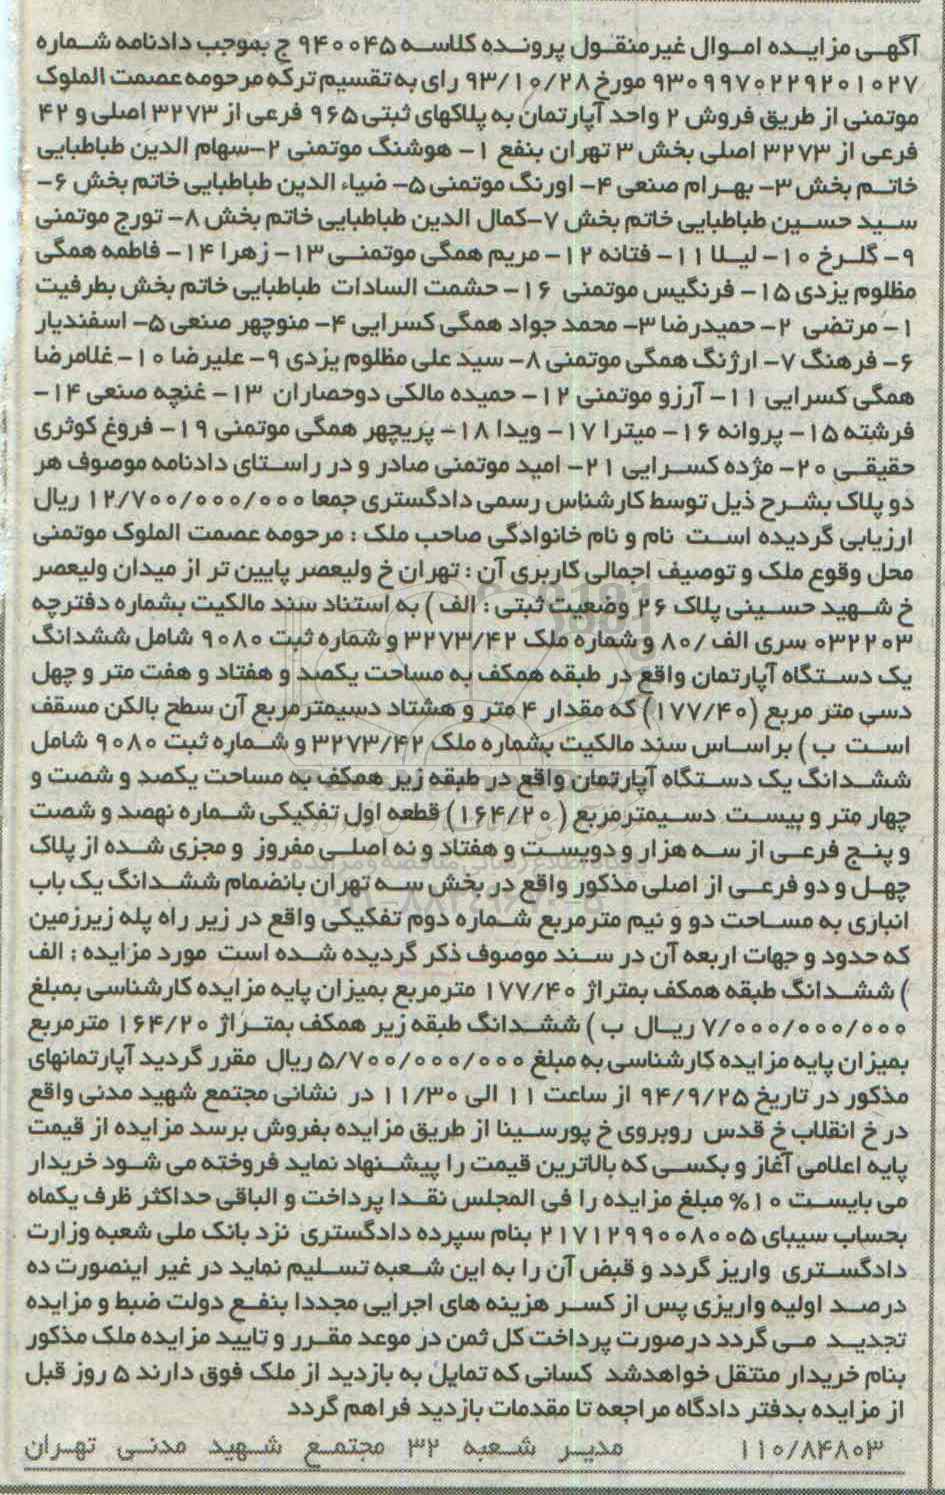 آگهی مزایده اموال غیرمنقول پرونده کلاسه ۹۴۰۰۴۵ ج بموجب دادنامه شماره
۹۳۰۹۹۷۰۲۲۹۲۰۱۰۲۷ مورخ ۹۳/۱۰/۲۸ رای به تقسیم ترکه مرحومه عصمت الملوک
موتمنی از طریق فروش ۲ واحد آپارتمان به پلاکهای ثبتی ۹۶۵ فرعی از ۳۲۷۳ اصلی و ۴۲
فرعی از ۳۲۷۳ اصلی بخش ۳ تهران بنفع ۱- هوشنگ موتمنی ۲-سهام الدین طباطبایی
خاتم بخش ۳- بهرام صنعی ۴- اورنگ موتمنی ۵- ضیاء الدین طباطبایی خاتم بخش ۶-
سید حسین طباطبایی خاتم بخش ۷-کمال الدین طباطبایی خاتم بخش ۸- تورج موتمنی
۹- گلرخ ۱۰- لیلا ۱۱- فتانه ۱۲- مریم همگی موتمنی ۱۳- زهرا ۱۴- فاطمه همگی
مظلوم یزدی ۱۵- فرنگیس موتمنی ۱۶- حشمت السادات طباطبایی خاتم بخش بطرفیت
۱- مرتضی ۲- حمیدرضا ۳- محمد جواد همگی کسرایی ۴- منوچهر صنعی ۵- اسفندیار
۶- فرهنگ ۷- ارژنگ همگی موتمنی ۸- سید علی مظلوم یزدی ۹- علیرضا ۱۰- غلامرضا
همگی کسرایی ۱۱- آرزو موتمنی ۱۲- حمیده مالکی دوحصاران ۱۳- غنچه صنعی ۱۴-
فرشته ۱۵- پروانه ۱۶- میترا ۱۷- ویدا ۱۸- پریچهر همگی موتمنی ۱۹- فروغ کوثری
حقیقی ۲۰- مژده کسرایی ۲۱- امید موتمنی صادر و در راستای دادنامه موصوف هر
دو پلاک بشرح ذیل توسط کارشناس رسمی دادگستری جمعا ۱۲/۷۰۰/۰۰۰/۰۰۰ ریال
ارزیابی گردیده است نام و نام خانوادگی صاحب ملک : مرحومه عصمت الملوک موتمنی
محل وقوع ملک و توصیف اجمالی کاربری آن : تهران خ ولیعصر پایین تر از میدان ولیعصر
خ شهید حسینی پلاک ۲۶ وضعیت ثبتی : الف ) به استناد سند مالکیت بشماره دفترچه
۰۳۲۲۰۳ سری الف /۸۰ و شماره ملک ۳۲۷۳/۴۲ و شماره ثبت ۹۰۸۰ شامل ششدانگ
یک دستگاه آپارتمان واقع در طبقه همکف به مساحت یکصد و هفتاد و هفت متر و چهل
دسی متر مربع (۱۷۷/۴۰) که مقدار ۴ متر و هشتاد دسیمترمربع آن سطح بالکن مسقف
است ب ) براساس سند مالکیت بشماره ملک ۳۲۷۳/۴۲ و شماره ثبت ۹۰۸۰ شامل
ششدانگ یک دستگاه آپارتمان واقع در طبقه زیر همکف به مساحت یکصد و شصت و
چهار متر و بیست دسیمترمربع (۱۶۴/۲۰) قطعه اول تفکیکی شماره نهصد و شصت
و پنج فرعی از سه هزار و دویست و هفتاد و نه اصلی مفروز و مجزی شده از پلاک
چهل و دو فرعی از اصلی مذکور واقع در بخش سه تهران بانضمام ششدانگ یک باب
انباری به مساحت دو و نیم مترمربع شماره دوم تفکیکی واقع در زیر راه پله زیرزمین
که حدود و جهات اربعه آن در سند موصوف ذکر گردیده شده است مورد مزایده : الف
) ششدانگ طبقه همکف بمتراژ ۱۷۷/۴۰ مترمربع بمیزان پایه مزایده کارشناسی بمبلغ
۷/۰۰۰/۰۰۰/۰۰۰ ریال ب ) ششدانگ طبقه زیر همکف بمتراژ ۱۶۴/۲۰ مترمربع
بمیزان پایه مزایده کارشناسی به مبلغ ۵/۷۰۰/۰۰۰/۰۰۰ ریال مقرر گردید آپارتمانهای
مذکور در تاریخ ۹۴/۹/۲۵ از ساعت ۱۱ الی ۱۱/۳۰ در نشانی مجتمع شهید مدنی واقع
در خ انقلاب خ قدس روبروی خ پورسینا از طریق مزایده بفروش برسد مزایده از قیمت
پایه اعلامی آغاز و بکسی که بالاترین قیمت را پیشنهاد نماید فروخته می شود خریدار
می بایست ۱۰% مبلغ مزایده را فی المجلس نقدا پرداخت و الباقی حداکثر ظرف یکماه
بحساب سیبای ۲۱۷۱۲۹۹۰۰۸۰۰۵ بنام سپرده دادگستری نزد بانک ملی شعبه وزارت
دادگستری واریز گردد و قبض آن را به این شعبه تسلیم نماید در غیر اینصورت ده
درصد اولیه واریزی پس از کسر هزینه های اجرایی مجددا بنفع دولت ضبط و مزایده
تجدید می گردد درصورت پرداخت کل ثمن در موعد مقرر و تایید مزایده ملک مذکور
بنام خریدار منتقل خواهدشد کسانی که تمایل به بازدید از ملک فوق دارند ۵ روز قبل
از مزایده بدفتر دادگاه مراجعه تا مقدمات بازدید فراهم گردد
۱۱۰/۸۴۸۰۳ مدیر شعبه ۳۲ مجتمع شهید مدنی تهران